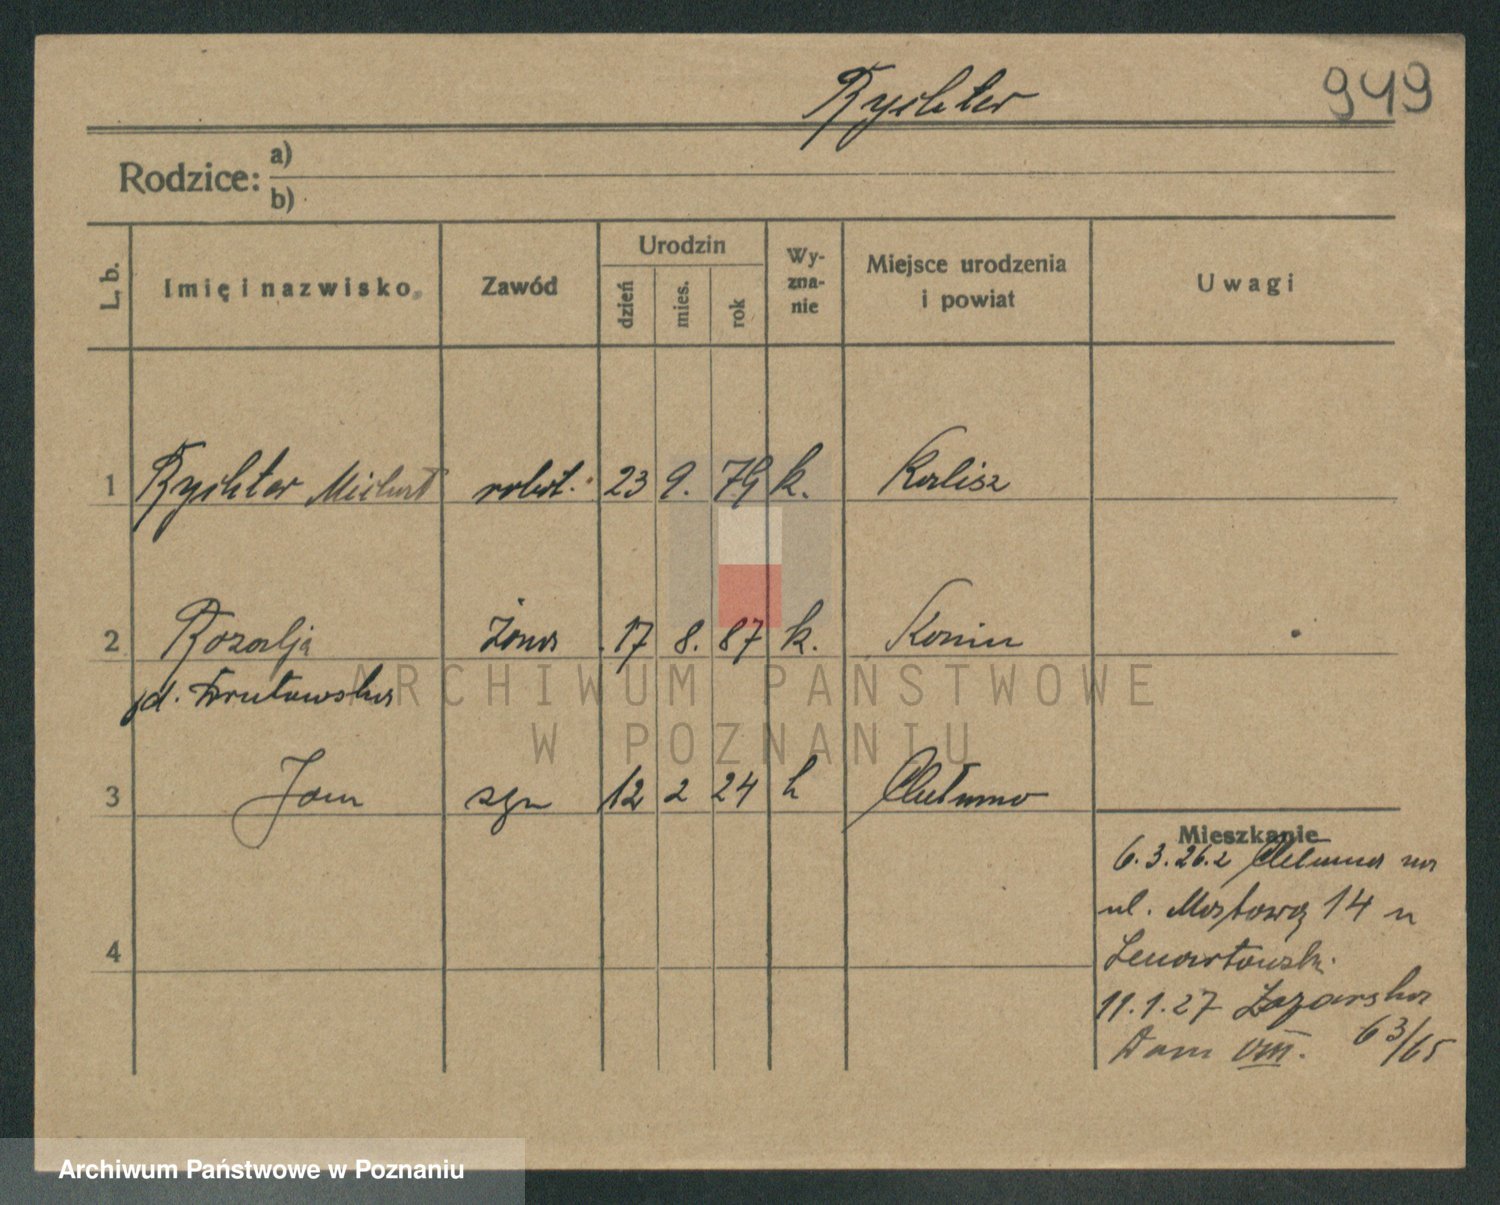 Rychter 949
Rodzice: a)
b)
L. b. Imię i nazwisko Zawód Urodzin dzień mies. rok Wy-zna-nie Miejsce urodzenia i powiat Uwagi
1 Rychter Michał robot. 23 9. 79 k. Kalisz
2 Rozalja żona 17 8. 87 k. Konin
ARCHIWUM PAŃSTWOWE
W POZNANIU
3 Jan syn 12 2 24 k
Mieszkanie
6.3.26. z na
ul. Mostową 14 u
Lenartowsk.
4
11.1.27 Łazarska
Dom VIII. 63/65
Archiwum Państwowe w Poznaniu